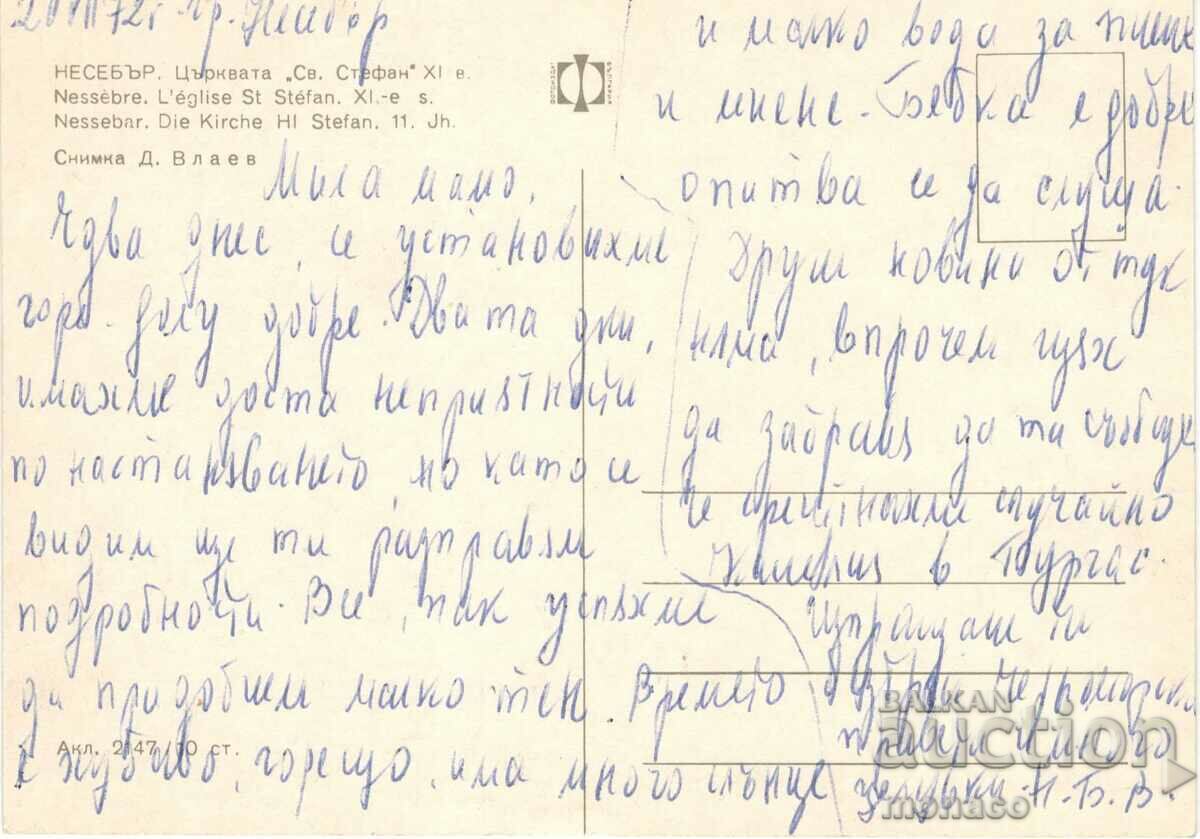 гр. Несебър
НЕСЕБЪР. Църквата „Св. Стефан" XI в.
Nessèbre. L'église St Stéfan. XI.-e s.
Nessebar. Die Kirche HI Stefan. 11. Jh.
Снимка Д. Влаев
Мила мамо,
Едва днес, се установихме
горе-долу добре. Двата дни,
имахме доста неприятности
по настаняването, но като се
видим ще ти разправям
подробности. Все, пак успяхме
да придобием малко тен. Времето
е хубаво, горещо, има много слънце
и малко вода за пиене
и миене. Бебка е добре
опитва се да слуша.
Други новини от тук
няма, впрочем щях
да забравя да та съобщя
че срещнахме случайно
в Бургас.
Изпращаме ти
черноморски
поздрави и много
целувки. Н. Б. В.
Акл. 2147/70 ст.
BALKAN
auction
monaco